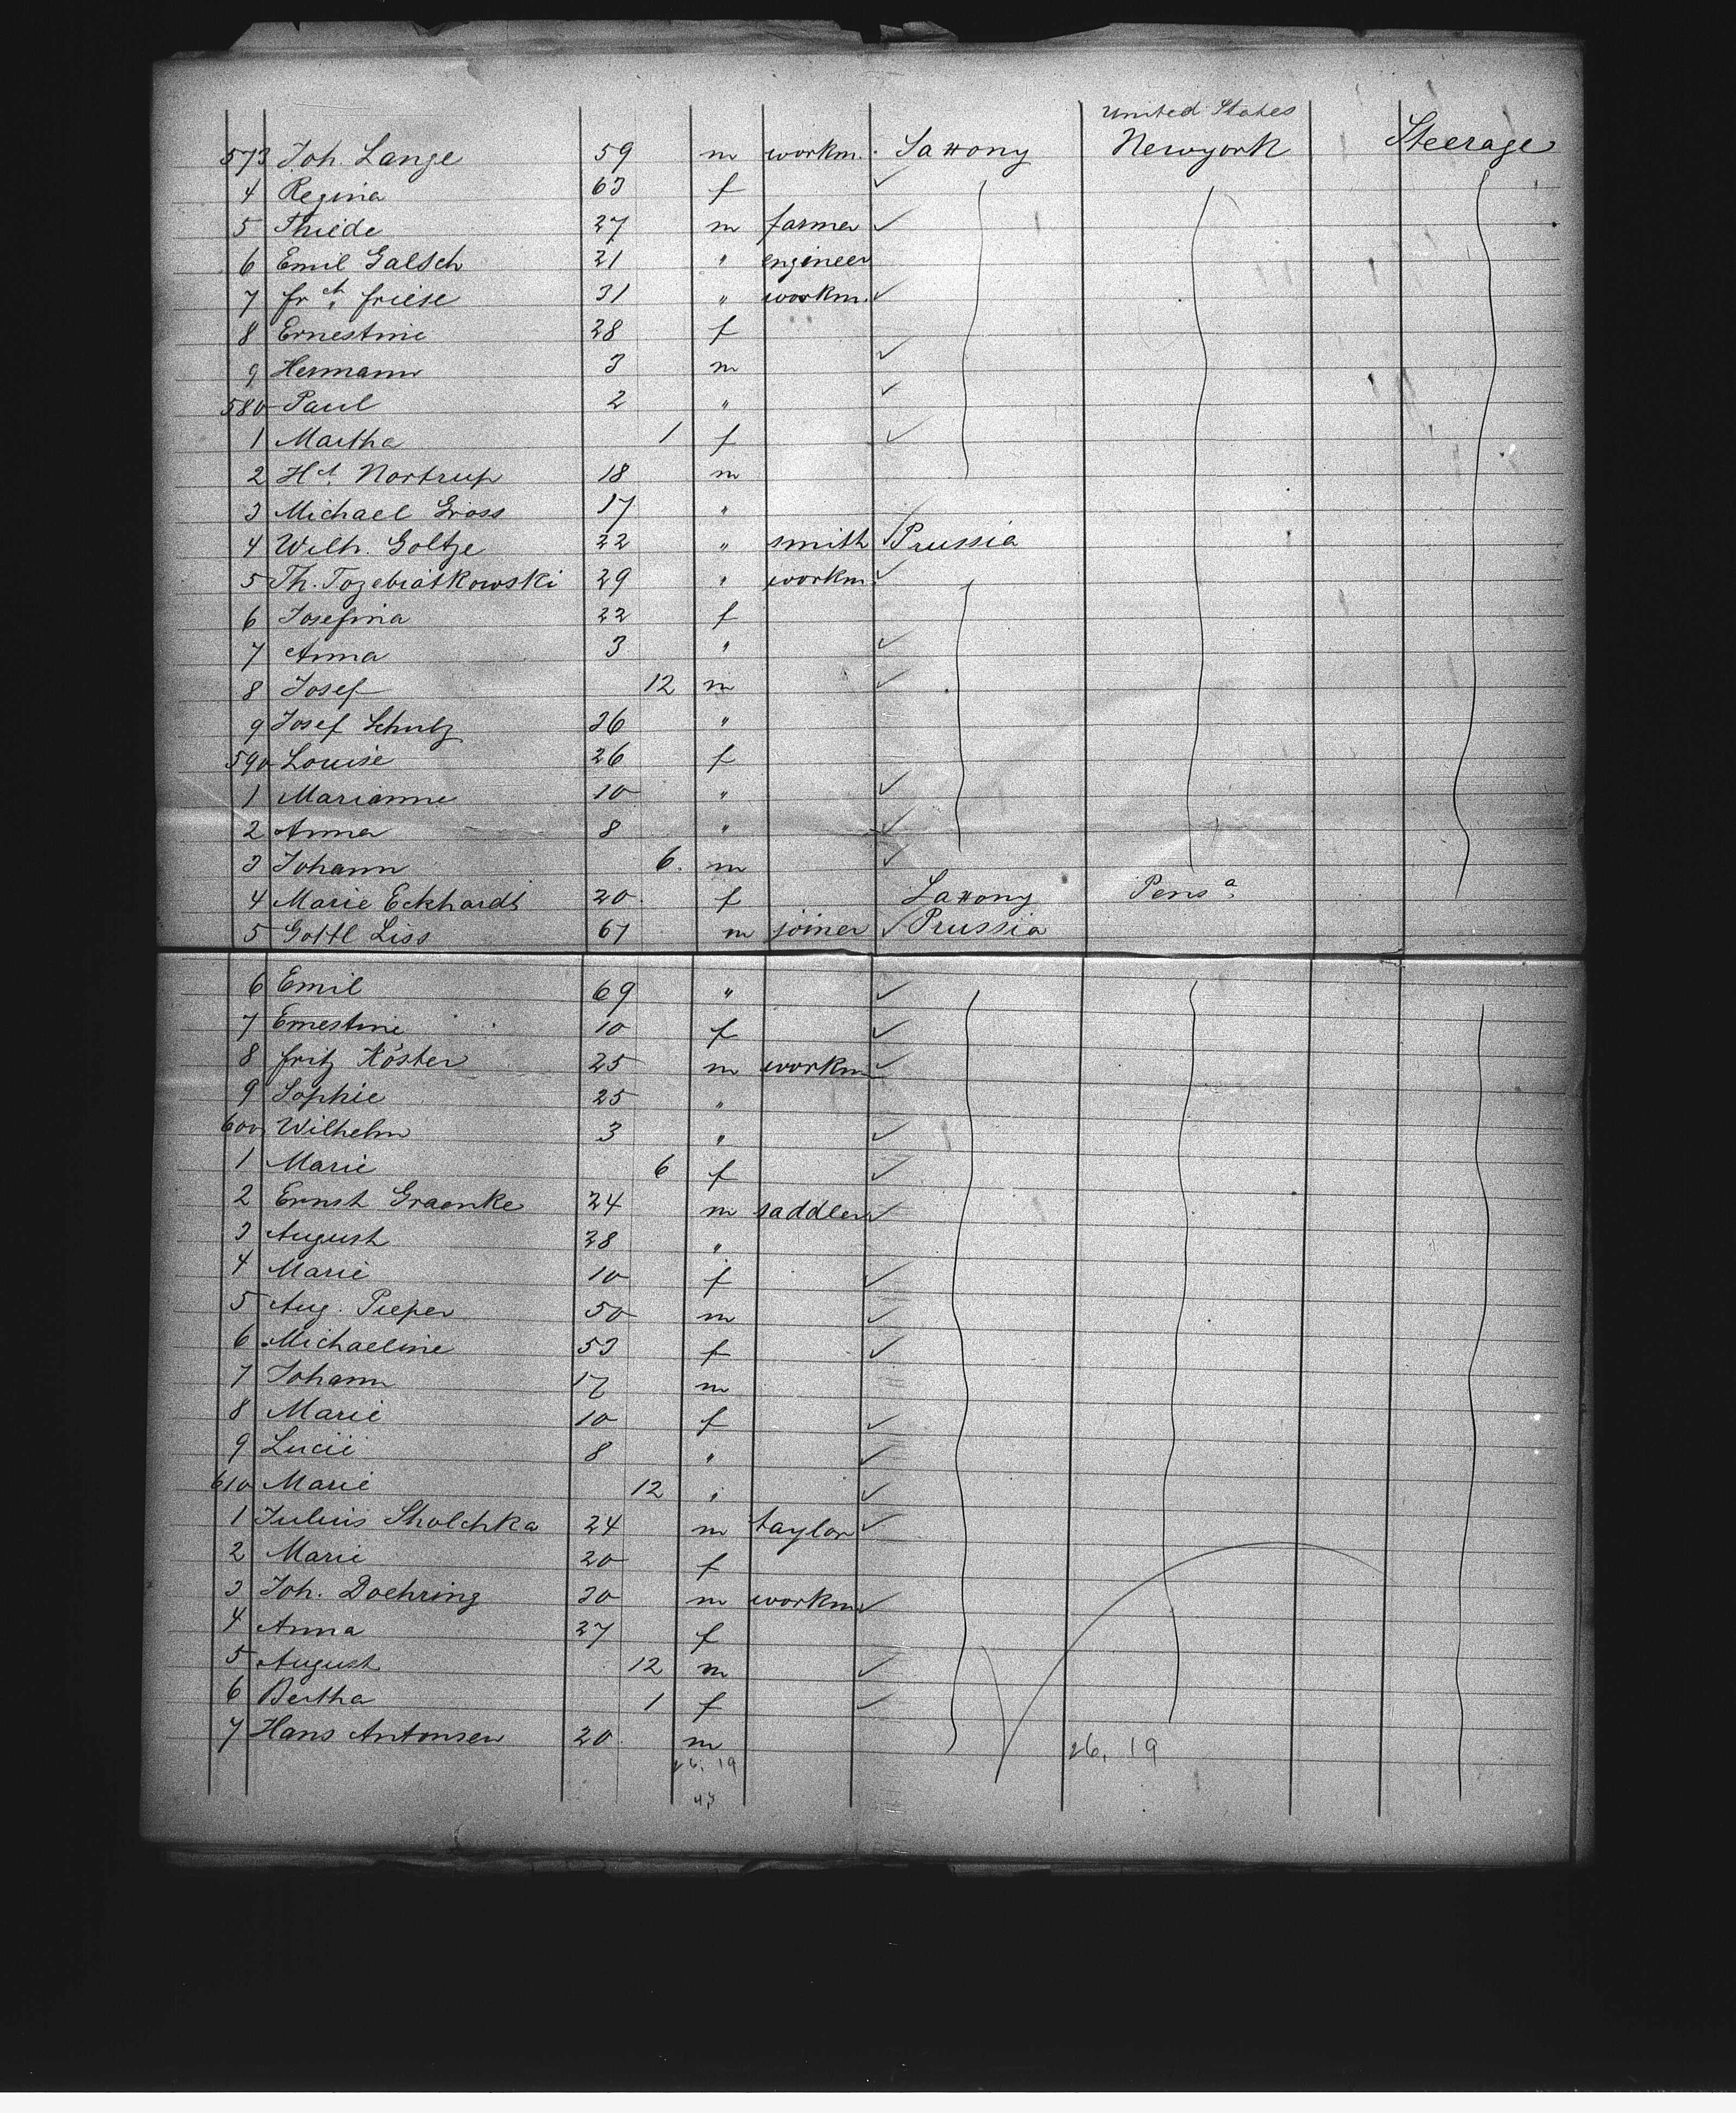 United States
573 Joh. Lange 59 m workm. Saxony Newyork Steerage
4 Regina 63 f ✓
5 Thilde 27 m farmer ✓
6 Emil Galsch 21 " engineer
7 Frdr. Friese 31 " workm. ✓
8 Ernestine 28 f
9 Hermann 3 m ✓
580 Paul 2 " ✓
1 Martha 1 f ✓
2 Hch. Nortrup 18 m
3 Michael Gross 17 "
4 Wilh. Goltze 22 " smith ✓ Prussia
5 Th. Tozebiatkowski 29 " workm. ✓
6 Josefina 22 f
7 Anna 3 " ✓
8 Josef 12 m ✓
9 Josef Schulz 36 "
590 Louise 26 f
1 Marianne 10 " ✓
2 Anna 8 " ✓
3 Johann 6. m ✓
4 Marie Eckhardt 20. f Saxony Pensa.
5 Gottl Liss 61 m joiner ✓ Prussia
6 Emil 69 " ✓
7 Ernestine 10 f ✓
8 Fritz Köster 25 m workm ✓
9 Sophie 25 "
600 Wilhelm 3 " ✓
1 Marie 6 f ✓
2 Ernst Graenke 24 m saddler ✓
3 August 28 "
4 Marie 10 f ✓
5 Aug. Pieper 50 m ✓
6 Michaeline 53 f ✓
7 Johann 17 m
8 Marie 10 f ✓
9 Lucie 8 " ✓
610 Marie 12 " ✓
1 Julius Sholchka 24 m taylor ✓
2 Marie 20 f
3 Joh. Doehring 30 m workm ✓
4 Anna 27 f
5 August 12 m ✓
6 Bertha 1 f ✓
7 Hans Antonsen 20. m
26. 19 26. 19